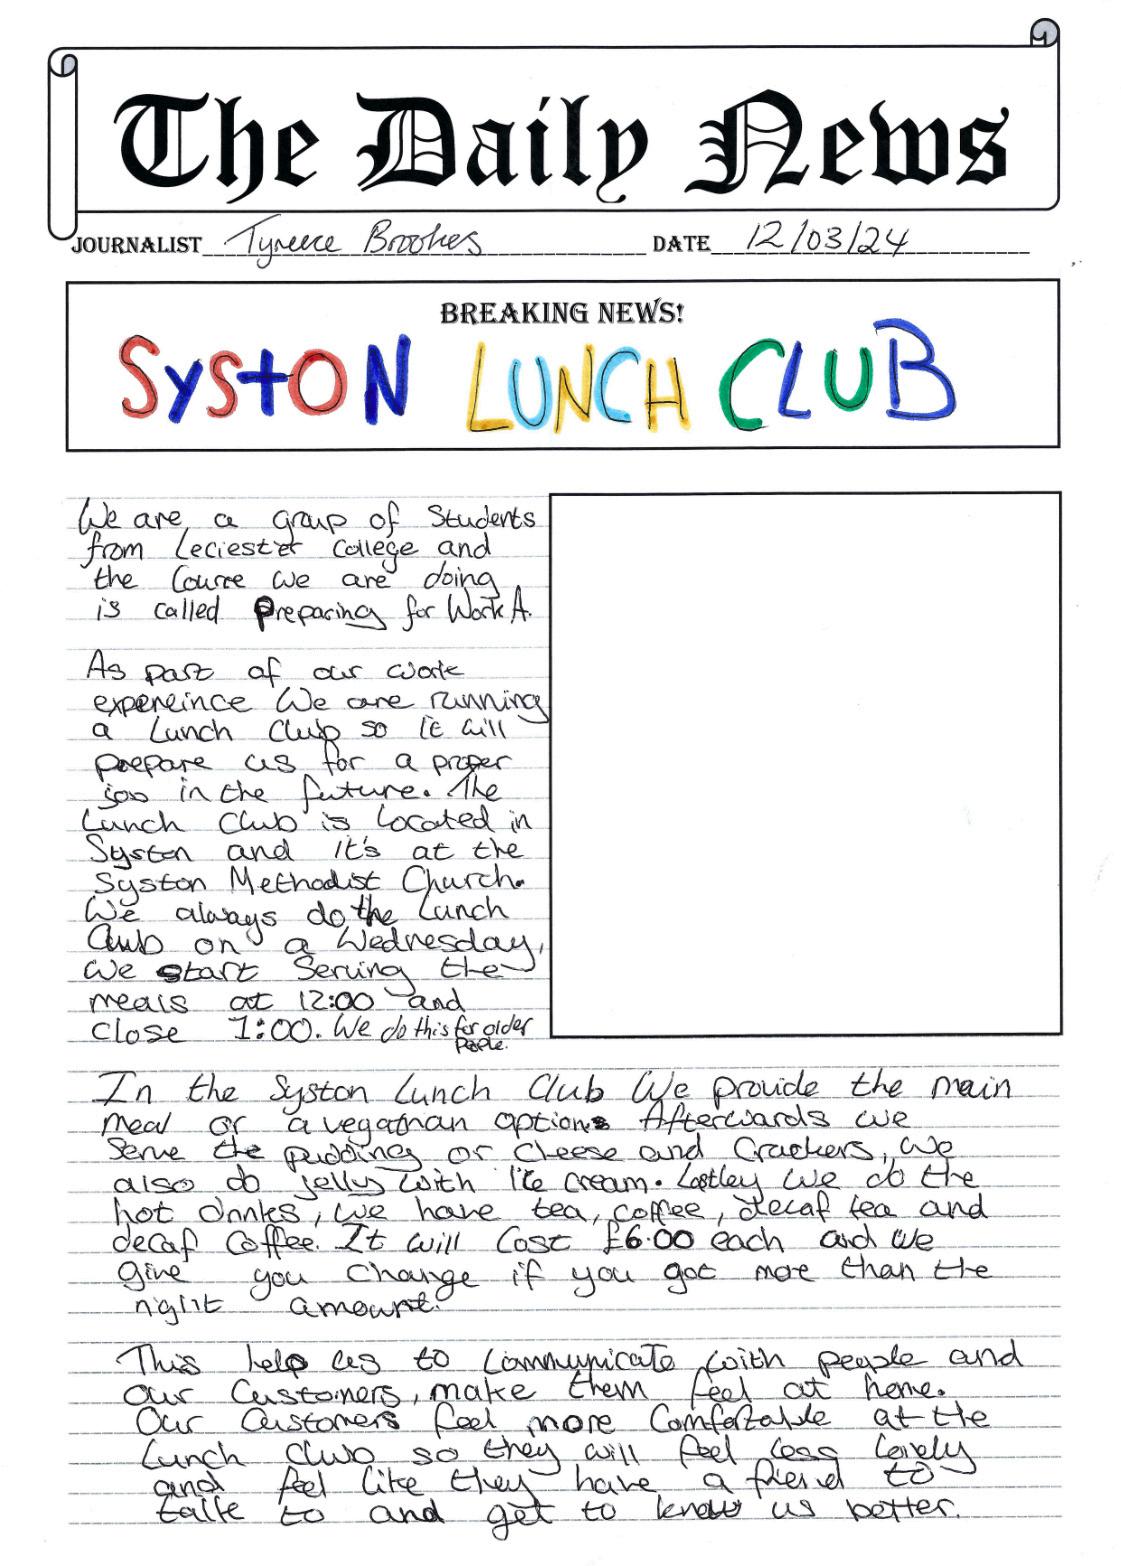 The Daily News
JOURNALIST Tyreece Brookes DATE 12/03/24
BREAKING NEWS!
SystON LUNCH CLUB
We are a group of Students
from Leciester College and
the Course we are doing
is called Preparing for Work A.
As part of our work
expereince We are running
a Lunch Club so it will
prepare us for a proper
job in the future. The
Lunch Club is located in
Syston and it's at the
Syston Methodist Church.
We always do the Lunch
Club on a Wednesday,
we start Serving the
meals at 12:00 and
close 1:00. We do this for older
people.
In the Syston Lunch Club We provide the main
meal or a options Afterwards we
Serve the puddings or Cheese and Crackers, we
also do jelly with Ice cream. Lastley we do the
hot drinks, we have tea, coffee, decaf tea and
decaf Coffee. It will Cost £6.00 each and we
give you change if you got more than the
right amount.
This help us to Communicate with people and
our Customers, make them feel at home.
Our Customers feel more Comfortable at the
Lunch Club so they will feel less lonely
and feel like they have a fiend to
talk to and get to know us better.